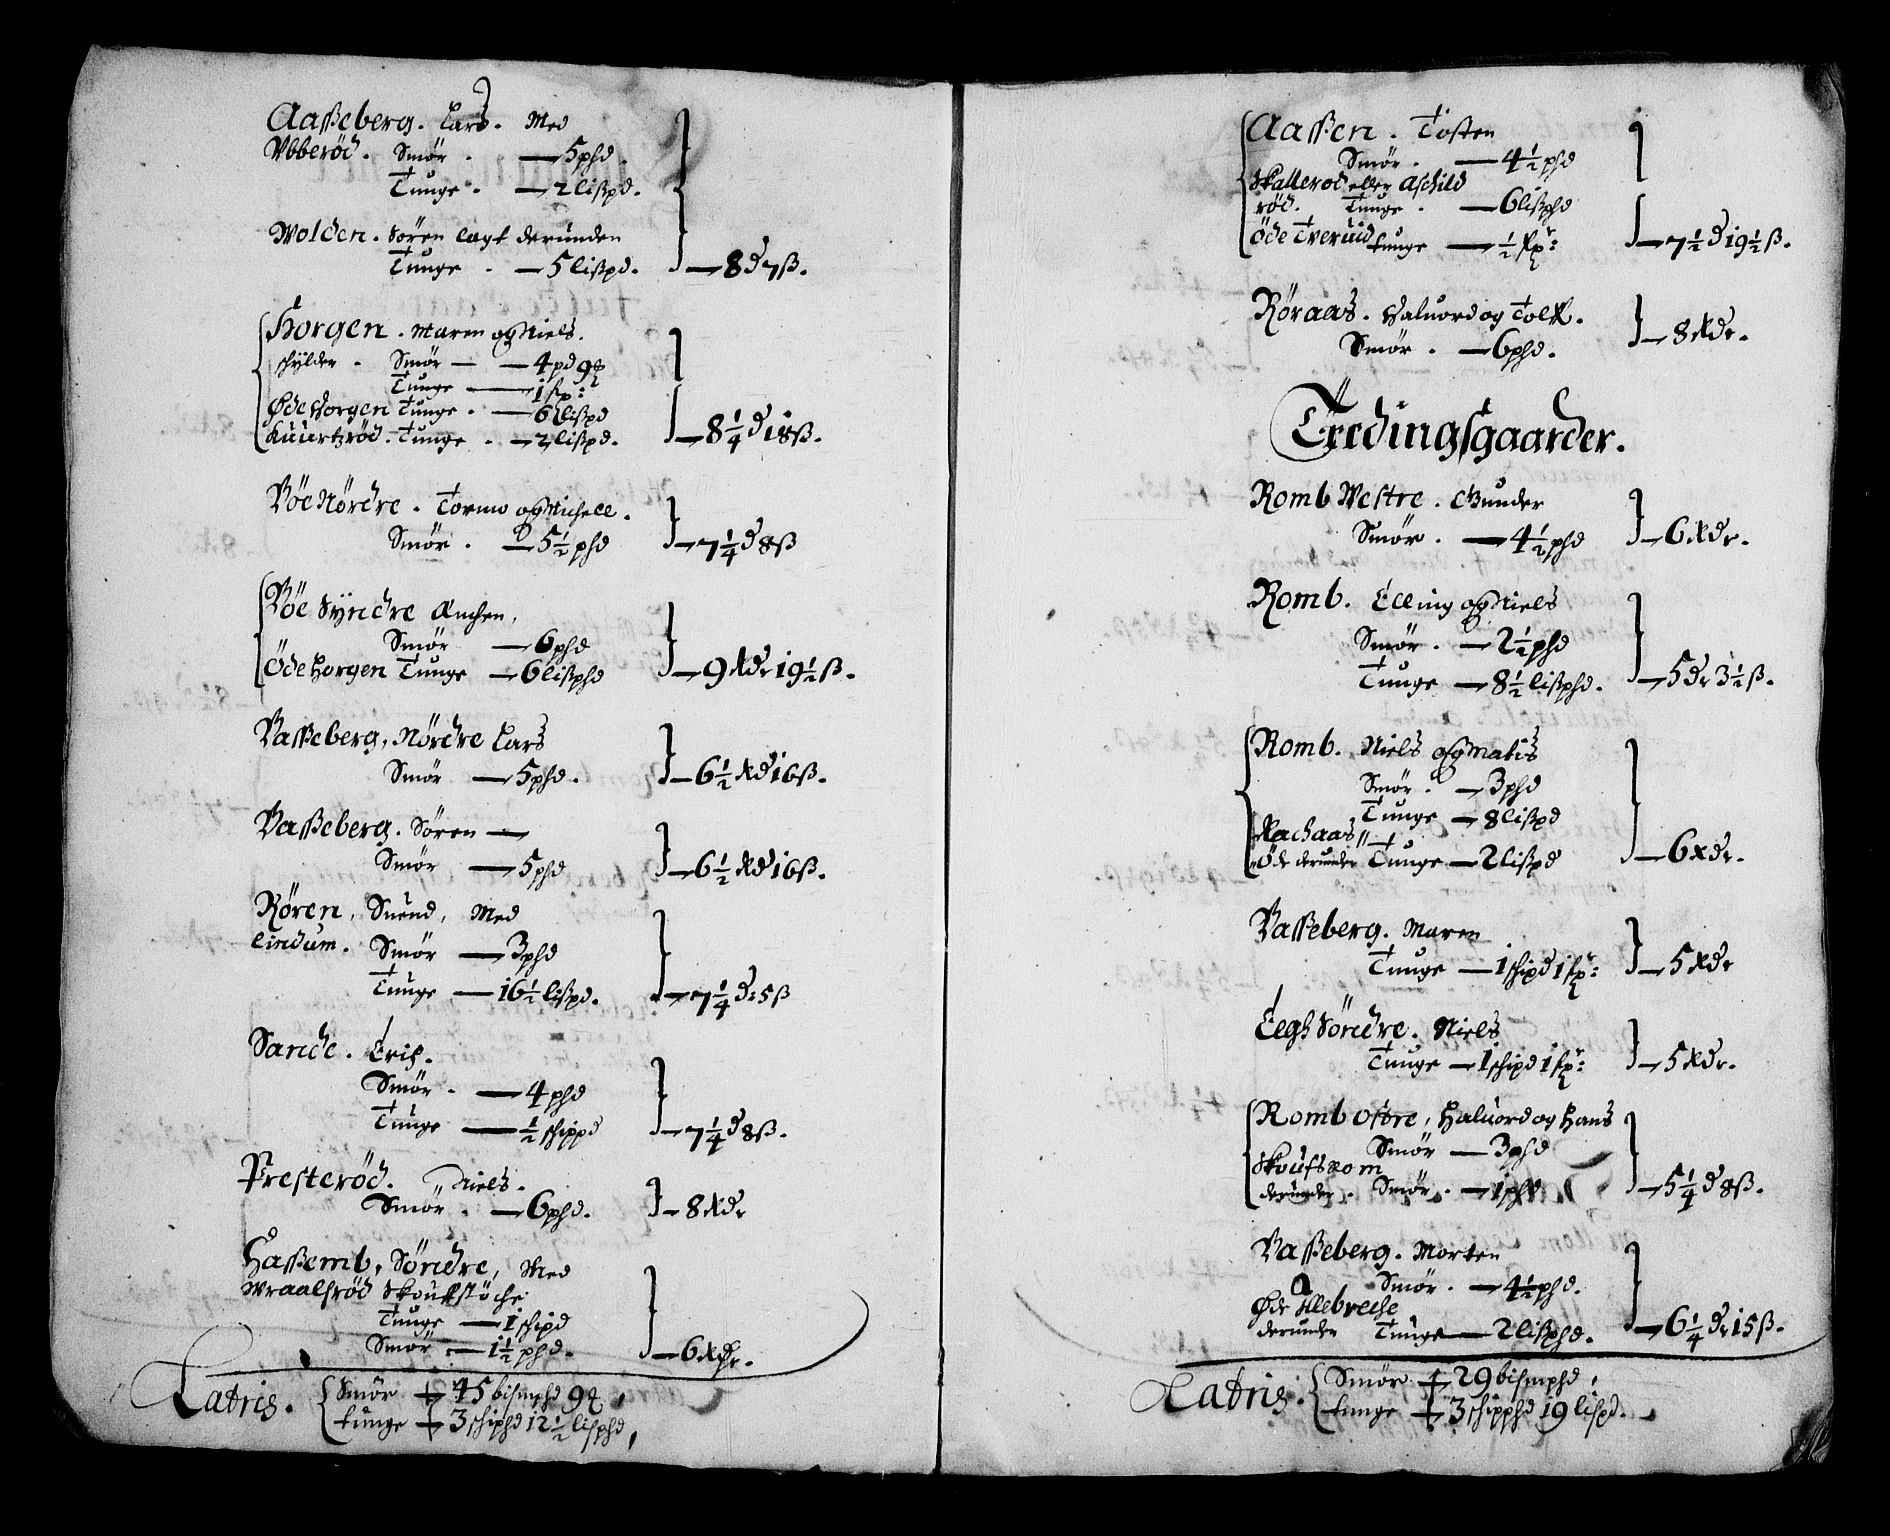 Aasseberg. Lars. Med
Ubberöd. Smör. — 5 phd.
Tunge. — 2 lißpd.
Wolden. Sören lagt derunden
Tunge. — 5 lißpd. — 8 d 7 ß.
Horgen. Maren og Niels.
schylder. Smör — 4 pd 9
Tunge — 1
Øde Horgen Tunge. — 6 lißpd
Kuurtzröd. Tunge. — 2 lißpd. — 8 1/4 d 18 ß.
Böe Nördre. Tormo og Michell.
Smör. — 5 1/2 phd — 7 1/4 d 8 ß
Böe Syndre Amhen,
Smör — 6 phd
Öde Horgen Tunge — 6 lißphd — 9 Rdr 19 1/2 ß.
Basseberg, Nördre Lars
Smör — 5 phd. — 6 1/2 Rd 16 ß.
Basseberg. Sören —
Smör — 5 phd — 6 1/2 Rd 16 ß.
Rören, Suend, Med
Lindum. Smör — 3 phd
Tunge — 16 1/2 lißpd. — 7 1/4 d: 5 ß
Sande. Erich.
Smör. — 4 phd
Tunge — 1/2 schippd — 7 1/4 d 8 ß.
Presteröd. Niels.
Smör. — 6 phd. — 8 Rdr
Hassemb, Söndre, Med
Wraalsröd
Tunge — 1 schipd
Smör — 1 1/2 phd. — 6 Rdr.
Latris. Smör — 45 bismphd 9
tunge — 3 schiphd 12 1/2 lisphd,
Aassen. Tosten
Smör. — 4 1/2 phd
Skalleröd eller Aschild
röd. Tunge. — 6 lißphd
Öde Tveruid tunge — 1/2 — 7 1/2 d 19 1/2 ß.
Röraas. Haluord og Tolff.
Smör. — 6 phd. — 8 Rdr.
Tredingsgaarder.
Romb Westre. Gunder
Smör. — 4 1/2 phd — 6 Rdr.
Romb. Elling og Niels
Smör. — 2 1/2 phd
Tunge — 8 1/2 lißphd. — 5 dr 3 1/2 ß.
Romb. Niels og Matis
Smör. — 3 phd
Tunge — 8 lißpd
Rachaas
Öde derunder Tunge — 2 lißpd — 6 Rdr.
Basseberg. Maren
Tunge — 1 schipd 1 — 5 Rdr
Elgh Söndre. Niels
Tunge — 1 schipd 1 — 5 Rdr.
Romb Ostre, Haluord og Hans
Smör — 3 phd
Skoufsrom
derunder. Smör. — 1 phd — 5 1/4 d 8 ß.
Basseberg. Morten
Smör. — 4 1/2 phd.
Øde Allebreche
derunder Tunge — 2 lißphd. — 6 1/4 dr 15 ß.
Latris. Smör — 29 bismphd,
tunge — 3 schipphd 19 lispd.